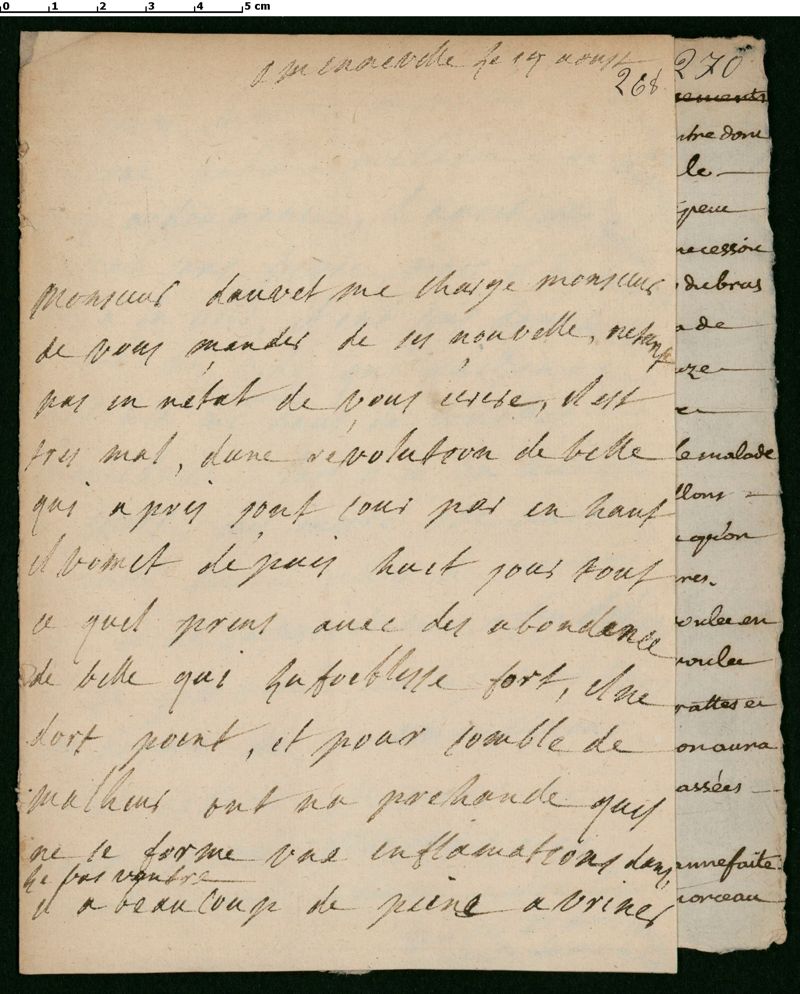 0 1 2 3 4 5 cm
a menneville le 17 aoust
268
monsieur dauvet me charge monsieur
de vous mander de ses nouvelle, netant
pas en nétat de vous écrire, il est
tres mal, dune révolution de belle
qui apres sont cour par en haut
il vomit dépuis huit jour tout
ce quil prens avec des abondance
de bille qui lafoeblisse fort, il ne
dort point, et pour comble de
malheur ont na prehande quil
ne ce forme une inflamations dans
le bas vantre
il a beaucoup de peine a uriner
270
rements
ntre dont
le
peu
necessiré
du bras
de
uze
le malade
llons
qu'on
res.
roulee en
roulee
rattes et
on aura
assées
anne faite
morceau